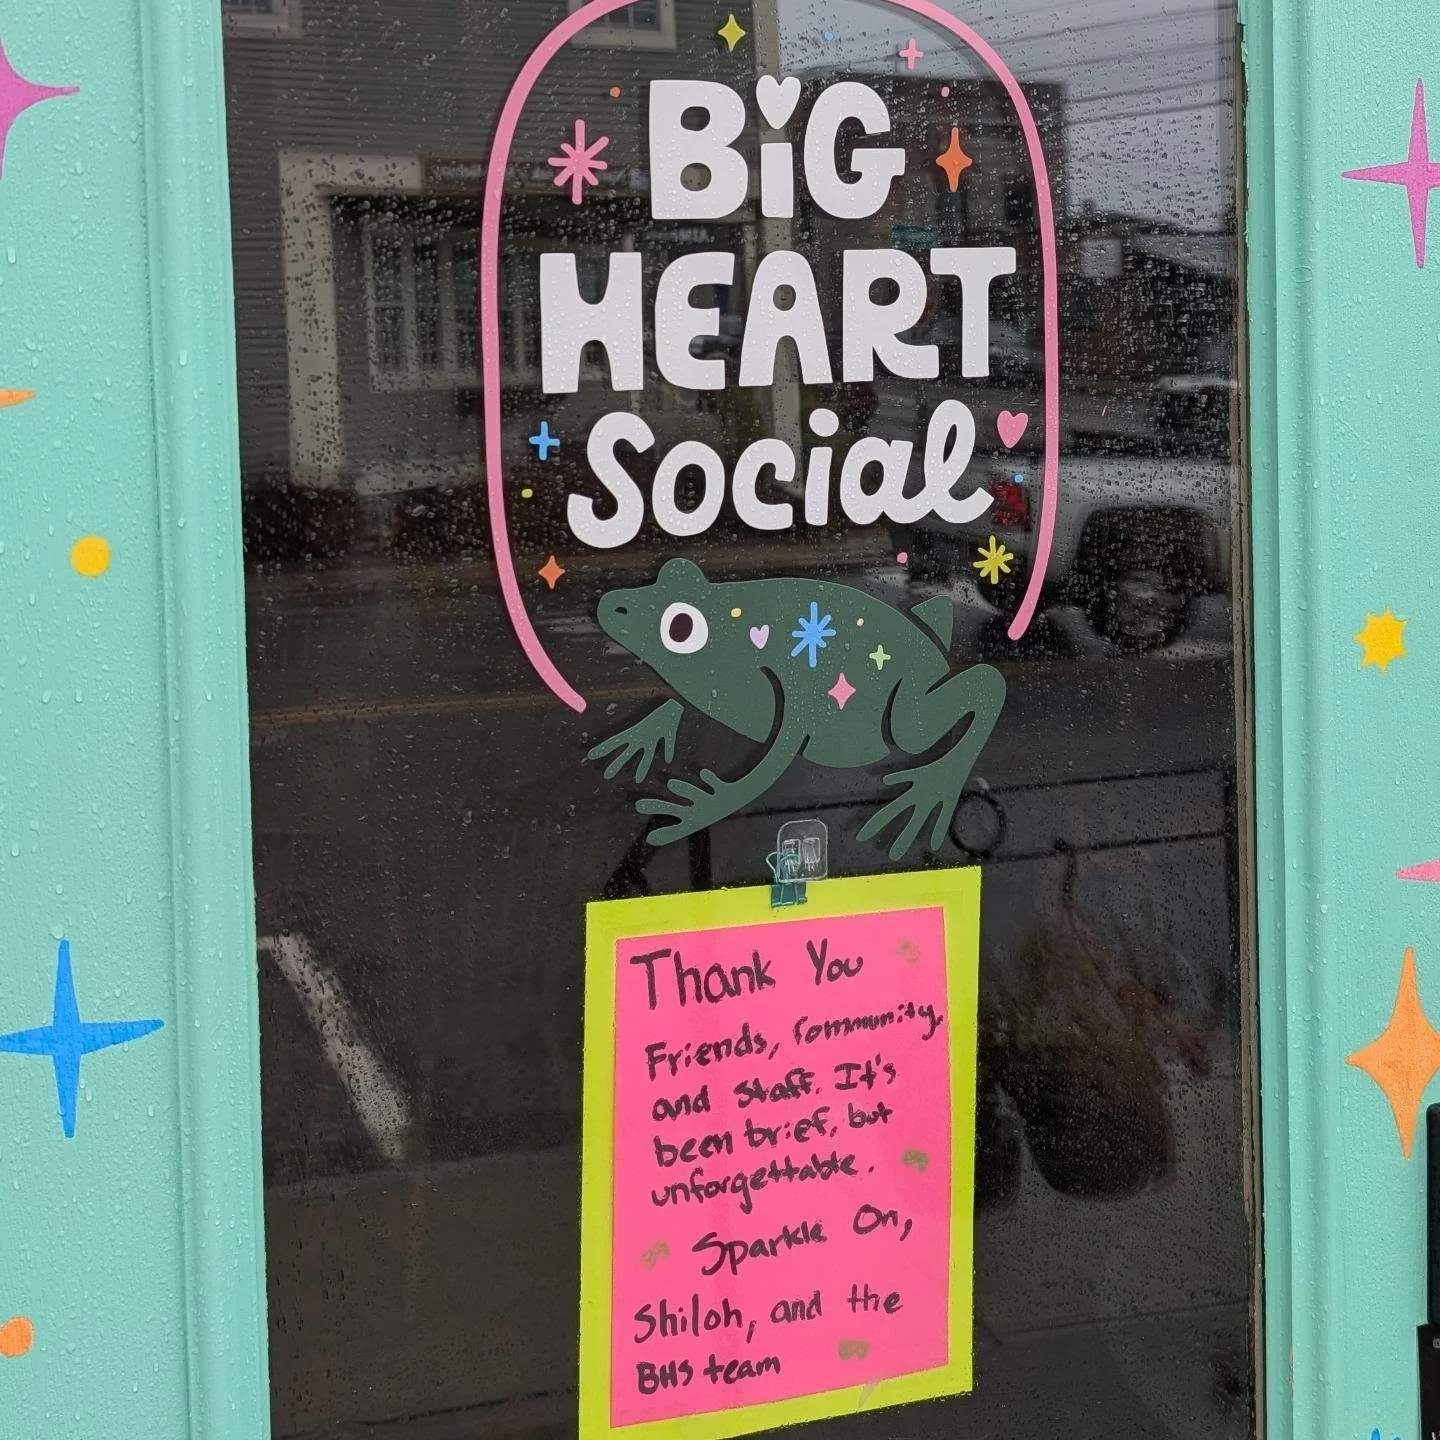 BiG
HEART
Social
Thank You
Friends, Community,
and Staff. It's
been brief, but
unforgettable.
Sparkle On,
Shiloh, and the
BHS team